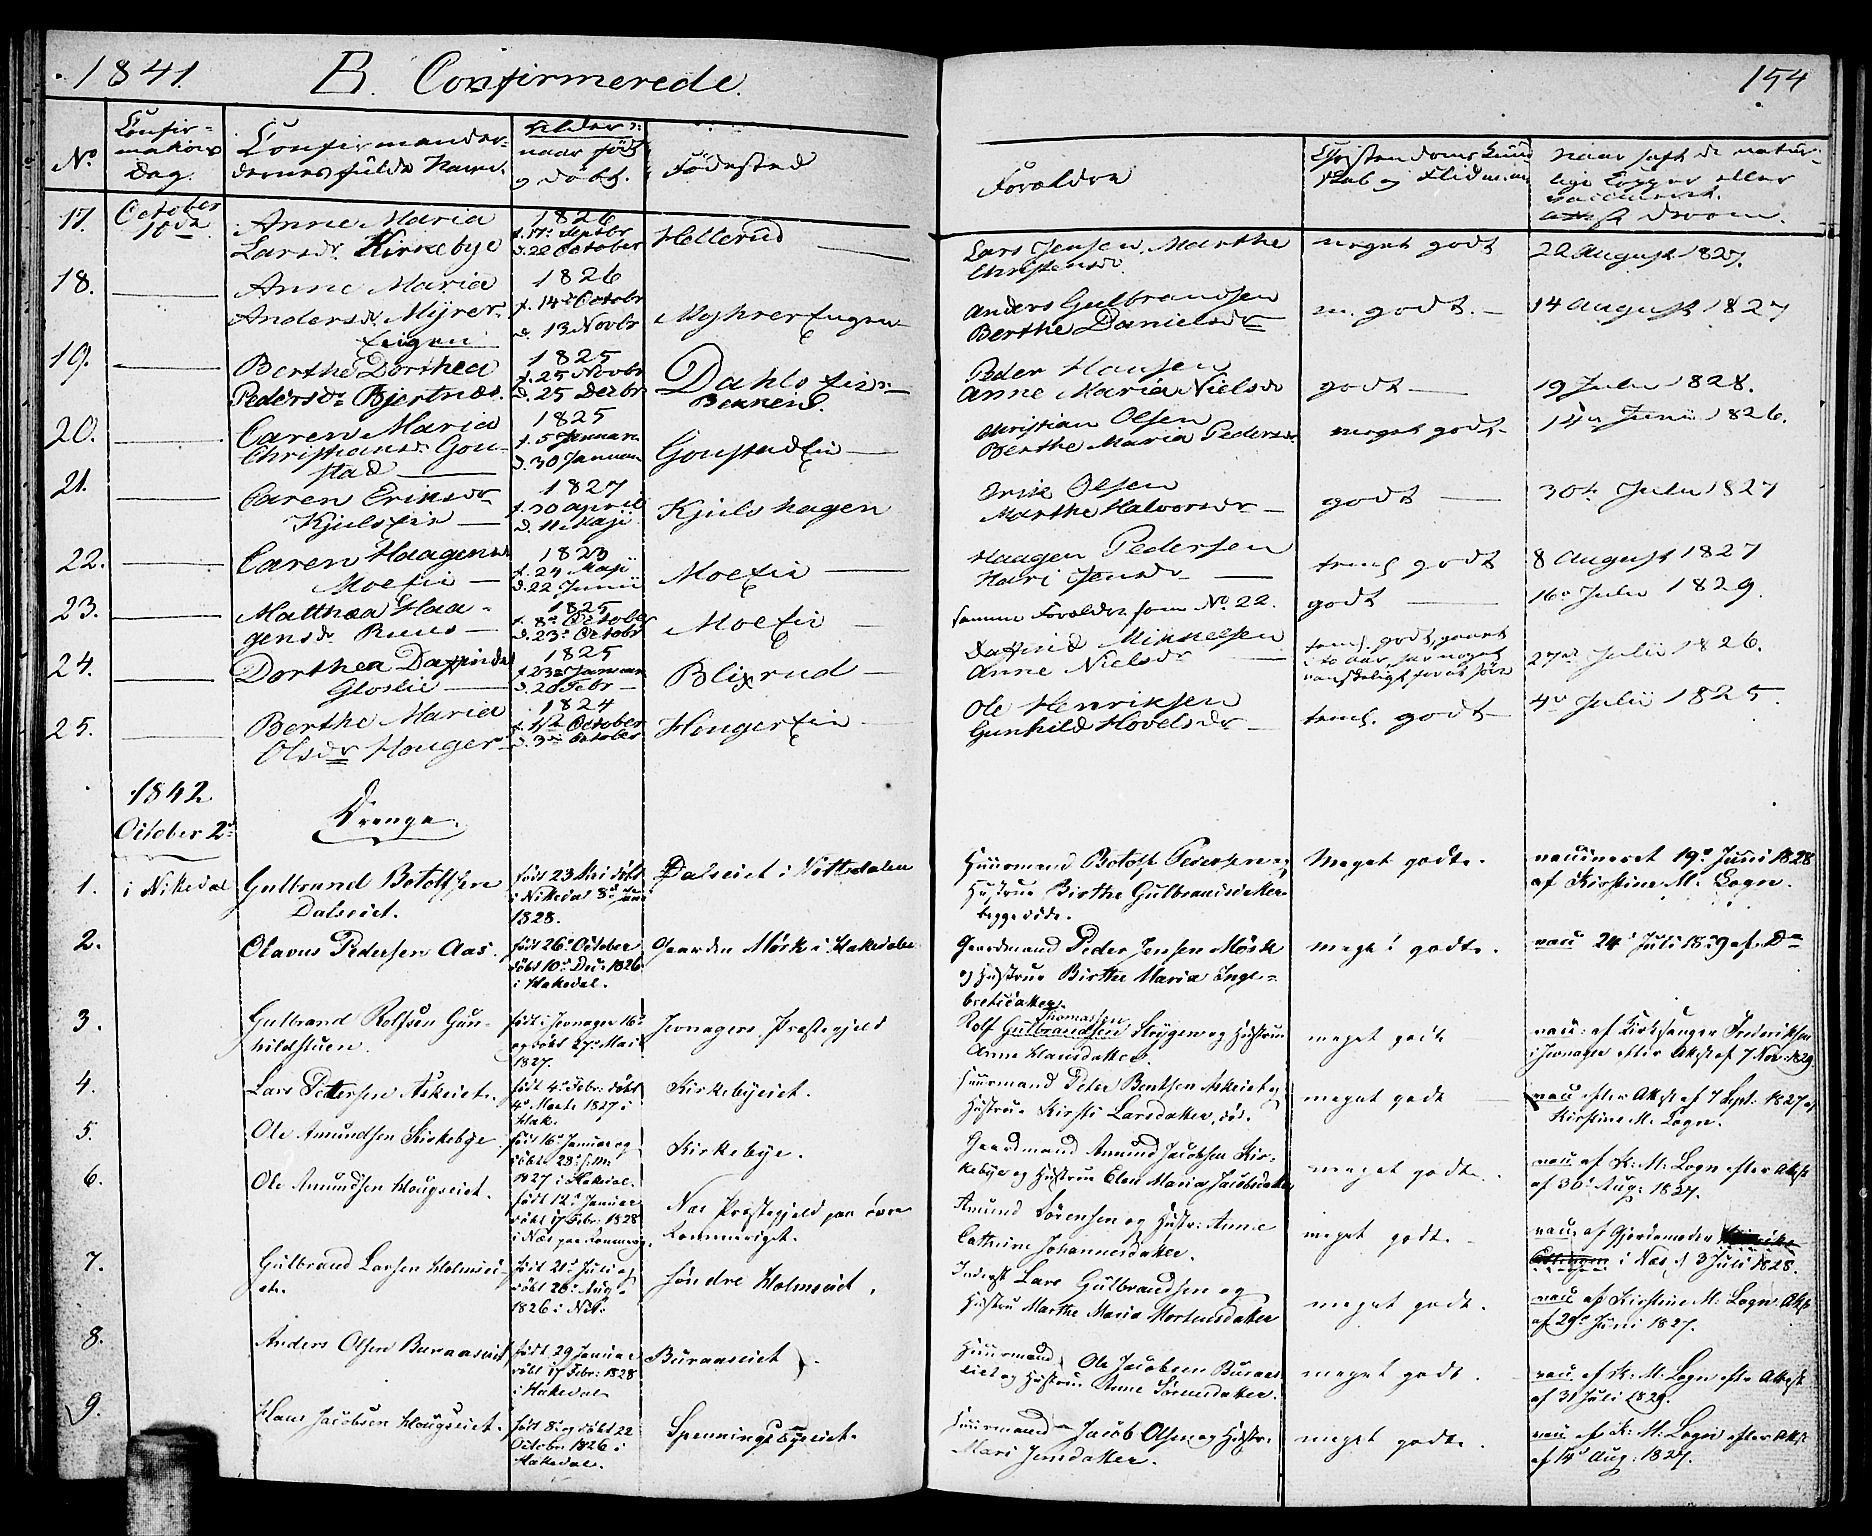 1841.
B. Confirmerede.
154
No
Confir-
mations
Dag.
Confirmander-
dernes fulde Navne.
Alder:
naar født
og døbt.
Fødested
Forældre
Christendoms Kund
skab og Flid
naar haft de natur-
lige Kopper eller
vaccineret.
17.
October
10de
Anne Maria
Larsdr Kirkebye
1826
f. 17 Septbr
d. 22 October
Hellerud
Lars Jensen, Marthe
Christensdr
meget godt
22 August 1827.
18.
Anne Maria
Andersdr Myrer-
Eigen
1826
f. 14de Octobr
d. 13 Novbr
Myhrer Engen
Anders Gulbrandsen
Berthe Danielsdr
m. godt.
14 August 1827
19.
Berthe Dorthea
Pedersdr Bjertnæs.
1825
f. 25 Novbr
d. 25 Decbr
Dahls
Peder Hansen
Anne Maria Nielsdr
godt
19 Julii 1828.
20.
Caren Maria
Christiansdr Gou-
stad
1825
f. 5 Januar
d. 30 Januar
Goustad Eie
Christian Olsen
Berthe Maria Pedersdr
meget godt
14de Junii 1826.
21.
Caren Eriksdr
Kjuls Eie
1827
f. 20 april
d. 11 Maji
Kjuls hagen
Erik Olsen
Marthe Halvorsdr
godt
30te Julii 1827
22.
Caren Haagensdr
Moe Eie
1823
f. 24 Maji
d. 22 Junii
Moe Eie
Haagen Pedersen
Kari Jensdr
tems godt
8 August 1827
23.
Matthea Haa-
gensdr Ruus
1825
f. 8de October
d. 23de Octobr
Moe Eie
samme Forældre som No. 22.
godt
16de Julii 1829.
24.
Dorthea Daffindsdr
Glosli
1825
f. 23de Januar
d. 20 Febr
Blixrud
Daffind Mikkelsen
Anne Nielsdr
tems. godt, gaaet
i to Aar, har noget
vanskeligt for at høre
27de Julii 1826.
25.
Berthe Maria
Olsdr Houger
1824
f. October
d. 3de October
Houger Eie
Ole Henriksen
Gunhild Hovelsdr
tems. godt
4de Julii 1825.
1842
October 2de
Drenge.
1.
i Nikedal
Gulbrand Botolfsen
Dalseiet.
født 23 Mai døbt
i Nikedal 8de Juni
1828.
Dalseiet i Nittedalen
Huusmand Botolf Pedersen og
Hustrue Birthe Gulbrandsdatter
begge døde.
Meget godt.
vaccineret 19de Juni 1828
af Kirstine M. Logn.
2.
Olavus Pedersen Aas.
født 26de October
døbt 10de Dec: 1826
i Hakedal.
Gaarden Mørk i Hakedalen
Gaardmand Peder Jensen Mørk
og Hustrue Birthe Maria Inge-
bretsdatter.
meget godt.
vacc 24de Juli 1829 af Do
3.
Gulbrand Rolfsen Gun-
hildstuen.
født i Jevnager 16de
og døbt 27de Mai
1827.
Jevnagers Præstegjeld
Thomassen
Rolf Gulbrandsen Strygen og Hustrue
Anne Hansdatter.
meget godt
vacc: af Kirksanger Frederiksen
i Jevnager efter Attest af 7 Nov: 1829
4.
Lars Pettersen Askeiet.
født 4de Febr: døbt
4de Marts 1827 i
Hak.
Kirkebyeiet.
Huusmand Peter Bentsen Askeiet og
Hustrue Kirsti Larsdatter, død.
meget godt
vacc efter Attest af 7 Sept: 1827 af
Kirstine M. Logn.
5.
Ole Amundsen Kirkebye.
født 16de Januar og
døbt 28de s: m:
1827 i Hakedal.
Kirkebye.
Gaardmand Amund Jacobsen Kir-
kebye og Hustrue Elen Maria Jacobsdatter
meget godt.
vacc af K: M: Logn efter Attest
af 30de Aug: 1827.
6.
Ole Amundsen Hougseiet.
født 12de Januar
døbt 17 Febr: 1828
i Næs paa Romerig.
Næs Præstegjeld paa øvre
Rommeriget.
Amund Sørensen og Hustr: Anne
Cathrine Johannesdatter.
meget godt.
vacc af Gjordemoder
i Næs d 3 Juli 1828.
7.
Gulbrand Larsen Holmsei-
et.
født 21de Juli og
døbt 20de Aug:
1826 i Nit:
Søndre Holmseiet.
Inderst Lars Gulbrandsen og
Hustru Marthe Maria Mortensdatter
meget godt.
vacc af Kirstine M: Logn Attst
af 29de Juni 1827.
8.
Anders Olsen Buraaseiet
født 29 Januar
døbt 17 Febr: 1828
i Hakedal
Buraaseiet.
Huusmand Ole Jacobsen Buraas-
eiet og Hustrue Anne Sørensdatter.
meget godt.
vacc af K: M: Logn efter Attest
af 31 Juli 1829.
9.
Hans Jacobsen Hougseiet.
født 8de og døbt 22
Octobr: 1826 i
Hakedal.
Spenningsbyeiet.
Huusmand Jacob Olsen og Hustr:
Mari Jensdatter.
meget godt.
vacc af K: M: Logn efter Attst
af 14de Aug: 1827.